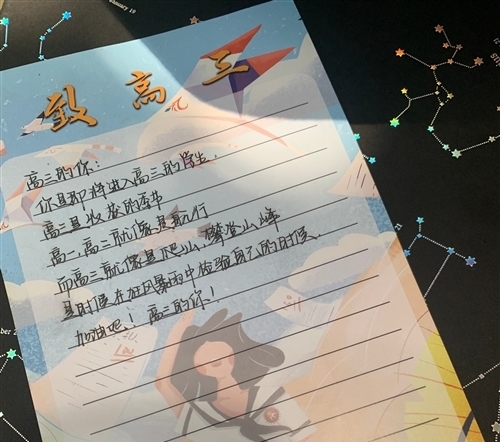 致高三
高三的你：
你是即将进入高三的学生．
高三是收获的季节
高一，高二就像是航行
而高三就像是爬山，攀登山峰
是时候在狂风暴雨中检验自己的时候．
加油吧！高三的你！